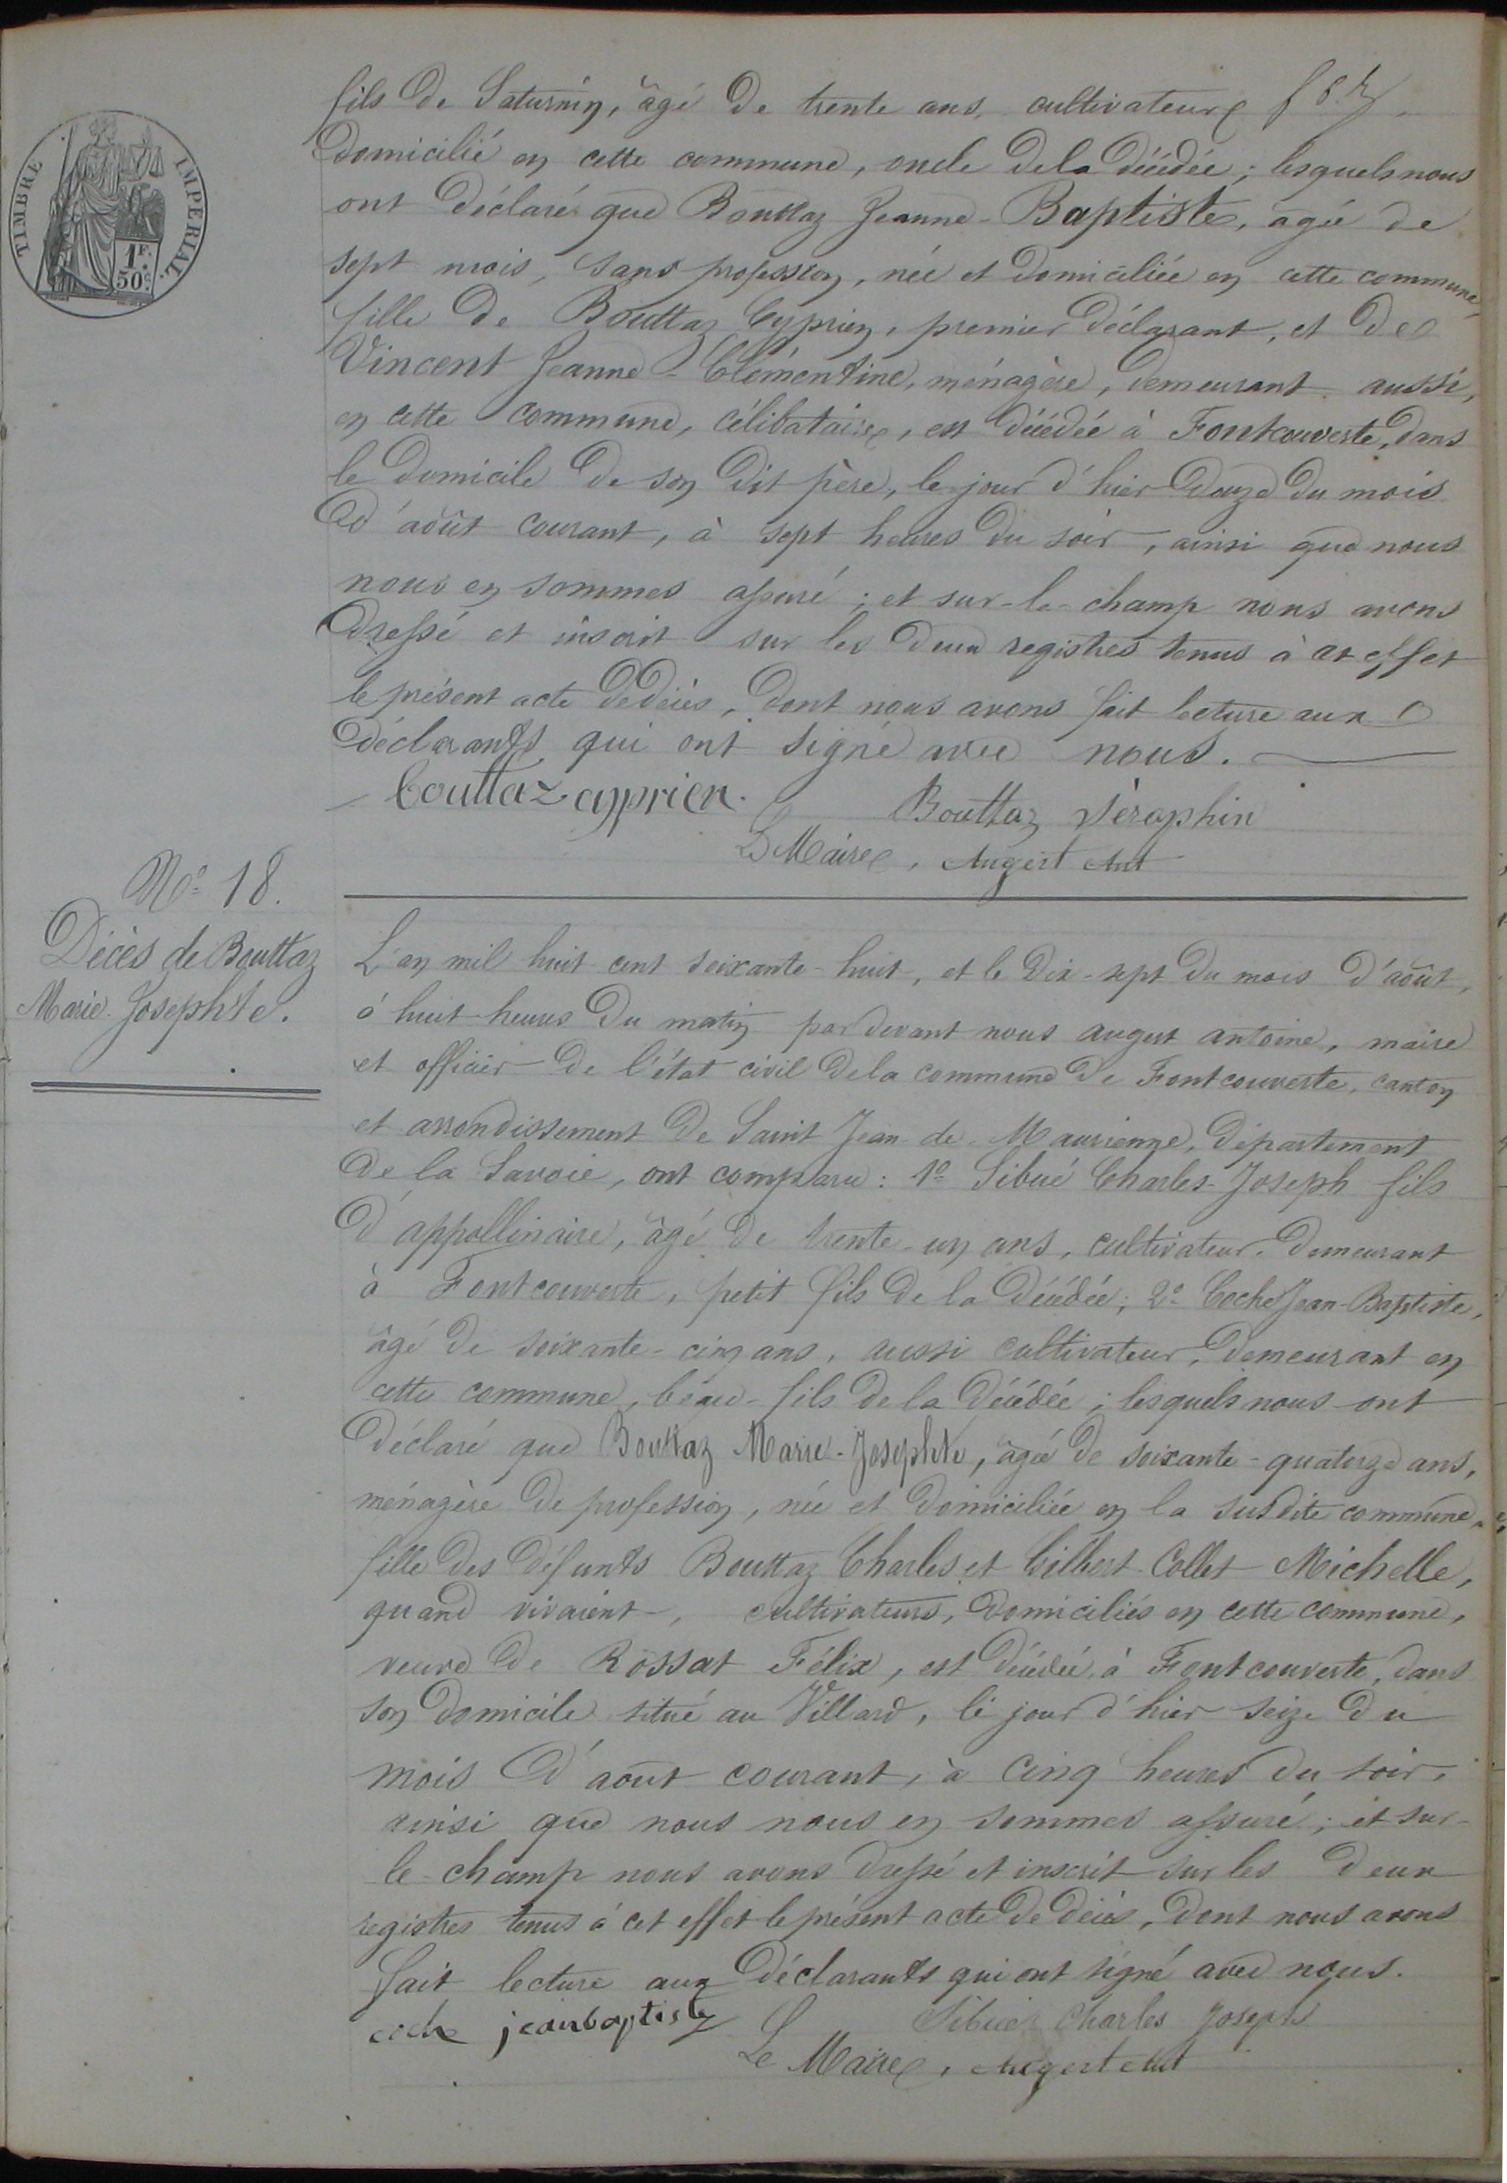 fils de Saturnin, âgé de trente ans, cultivateur
TIMBRE IMPERIAL.
1F.
50c.
domicilié en cette commune, oncle de la décédée ; lesquels nous
ont déclaré que Bouttaz Jeanne-Baptiste, agée de
sept mois, sans profession, née et domiciliée en cette commune,
fille de Bouttaz Cyprien, premier déclarant, et de
Vincent Jeanne-Clémentine, ménagère, demeurant aussi,
en cette commune, célibataire, est décédée à Fontcouverte, dans
le domicile de son dit père, le jour d'hier douze du mois
d'août courant, à sept heures du soir, ainsi que nous
nous en sommes assuré ; et sur-le-champ nous avons
dressé et inscrit sur les deux registres tenus à cet effet
le présent acte de décès, dont nous avons fait lecture aux
déclarants qui ont signé avec nous.
Bouttaz cyprien.
Bouttaz Séraphin
Le Maire, Augert Ant
No 18.
Décès de Bouttaz
Marie-Josephte.
L'an mil huit cent soixante-huit, et le dix-sept du mois d'août,
à huit heures du matin par devant nous augert antoine, maire
et officier de l'état civil de la commune de Fontcouverte, canton
et arrondissement de Saint Jean-de-Maurienne, département
de la Savoie, ont comparu : 1o Sibué Charles-Joseph fils
d'appollinaire, âgé de trente-un ans, cultivateur, demeurant
à Fontcouverte, petit fils de la décédée ; 2o Coche Jean-Baptiste,
âgé de soixante-cinq ans, aussi cultivateur, demeurant en
cette commune, beau-fils de la décédée ; lesquels nous ont
déclaré que Bouttaz Marie-Josephte, âgée de soixante-quatorze ans,
ménagère de profession, née et domiciliée en la susdite commune,
fille des défunts Bouttaz Charles et Gilbert-Collet Michelle,
quand vivaient, cultivateurs, domiciliés en cette commune,
veuve de Rossat Félix, est décédée à Fontcouverte, dans
son domicile situé au Villard, le jour d'hier seize du
mois d'août courant, à cinq heures du soir,
ainsi que nous nous en sommes assuré ; et sur-
le-champ nous avons dressé et inscrit sur les deux
registres tenus à cet effet le présent acte de décès, dont nous avons
fait lecture aux déclarants qui ont signé avec nous.
coche jeanbaptiste
Sibué Charles Joseph
Le Maire, Augert Ant